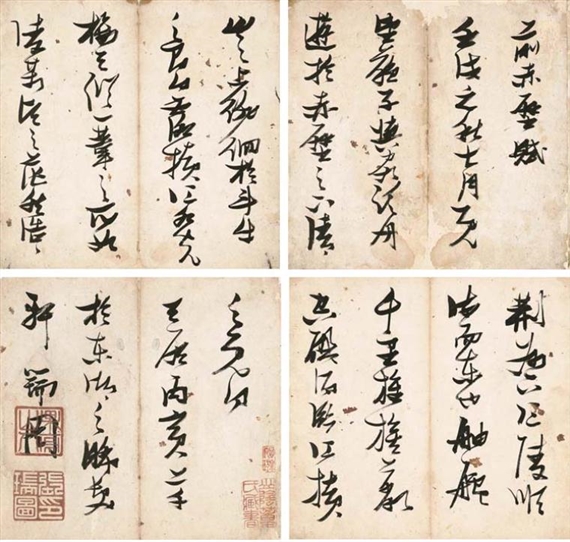 前赤壁賦
壬戌之秋七月既
望蘇子與客泛舟
遊於赤壁之下清
山之上徘徊於斗牛
之間白露橫江水光
接天縱一葦之所如
陵萬頃之茫然浩浩
荊州下江陵順
流而東也舳艫
千里旌旗蔽
空釃酒臨江橫
之既白
丙寅
於東湖之
軒 瑞圖